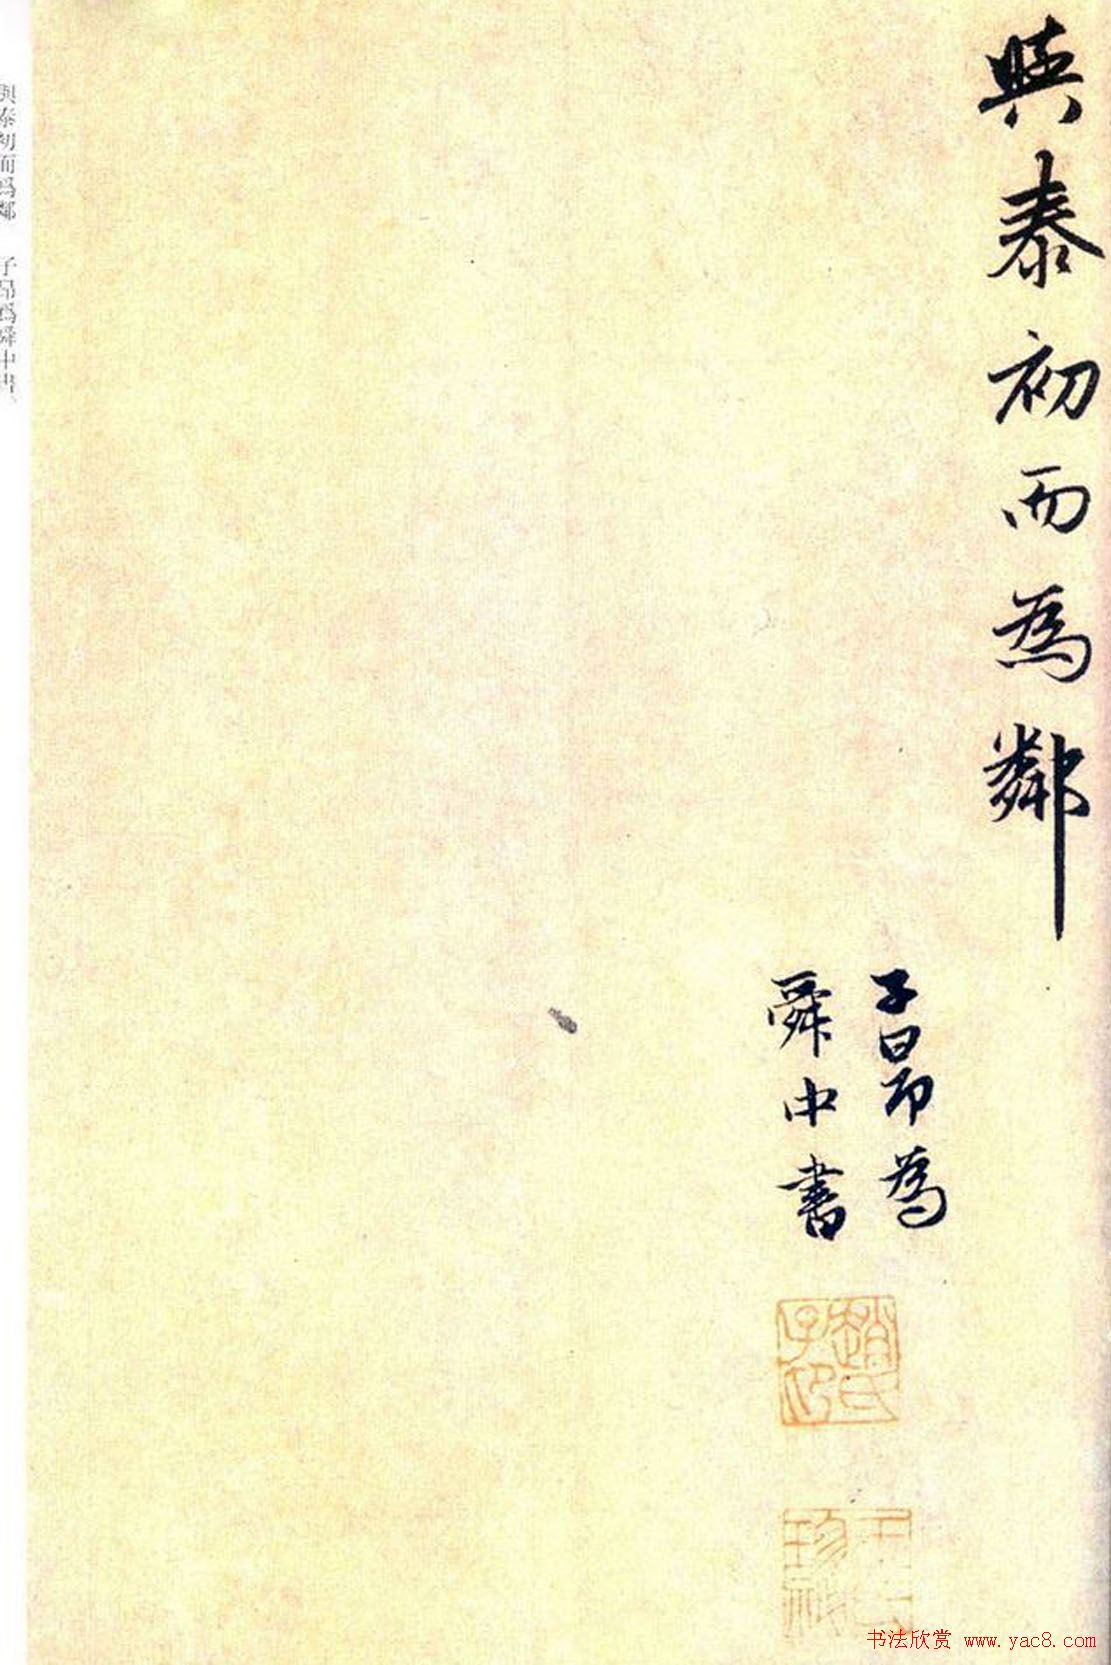 與泰初而為鄰
子昂為
舜中書
趙氏
子昂
與泰初而爲鄰 子昂爲舜中書、
书法欣赏 www.yac8.com